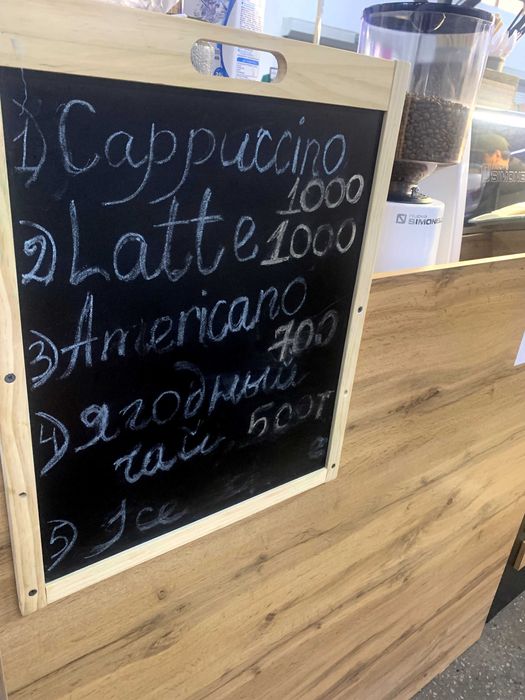 1) Cappuccino
1000
2) Latte 1000
3) Americano
700
4) ягодный
чай 500т
5) Ice
NUOVA
SIMONELLI